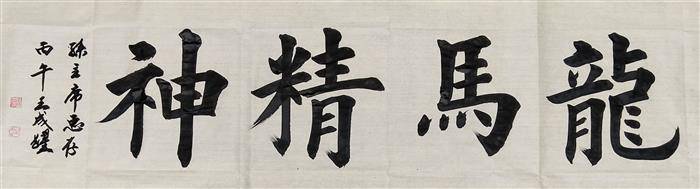 龍馬精神
孫主席惠存
丙午王成耀